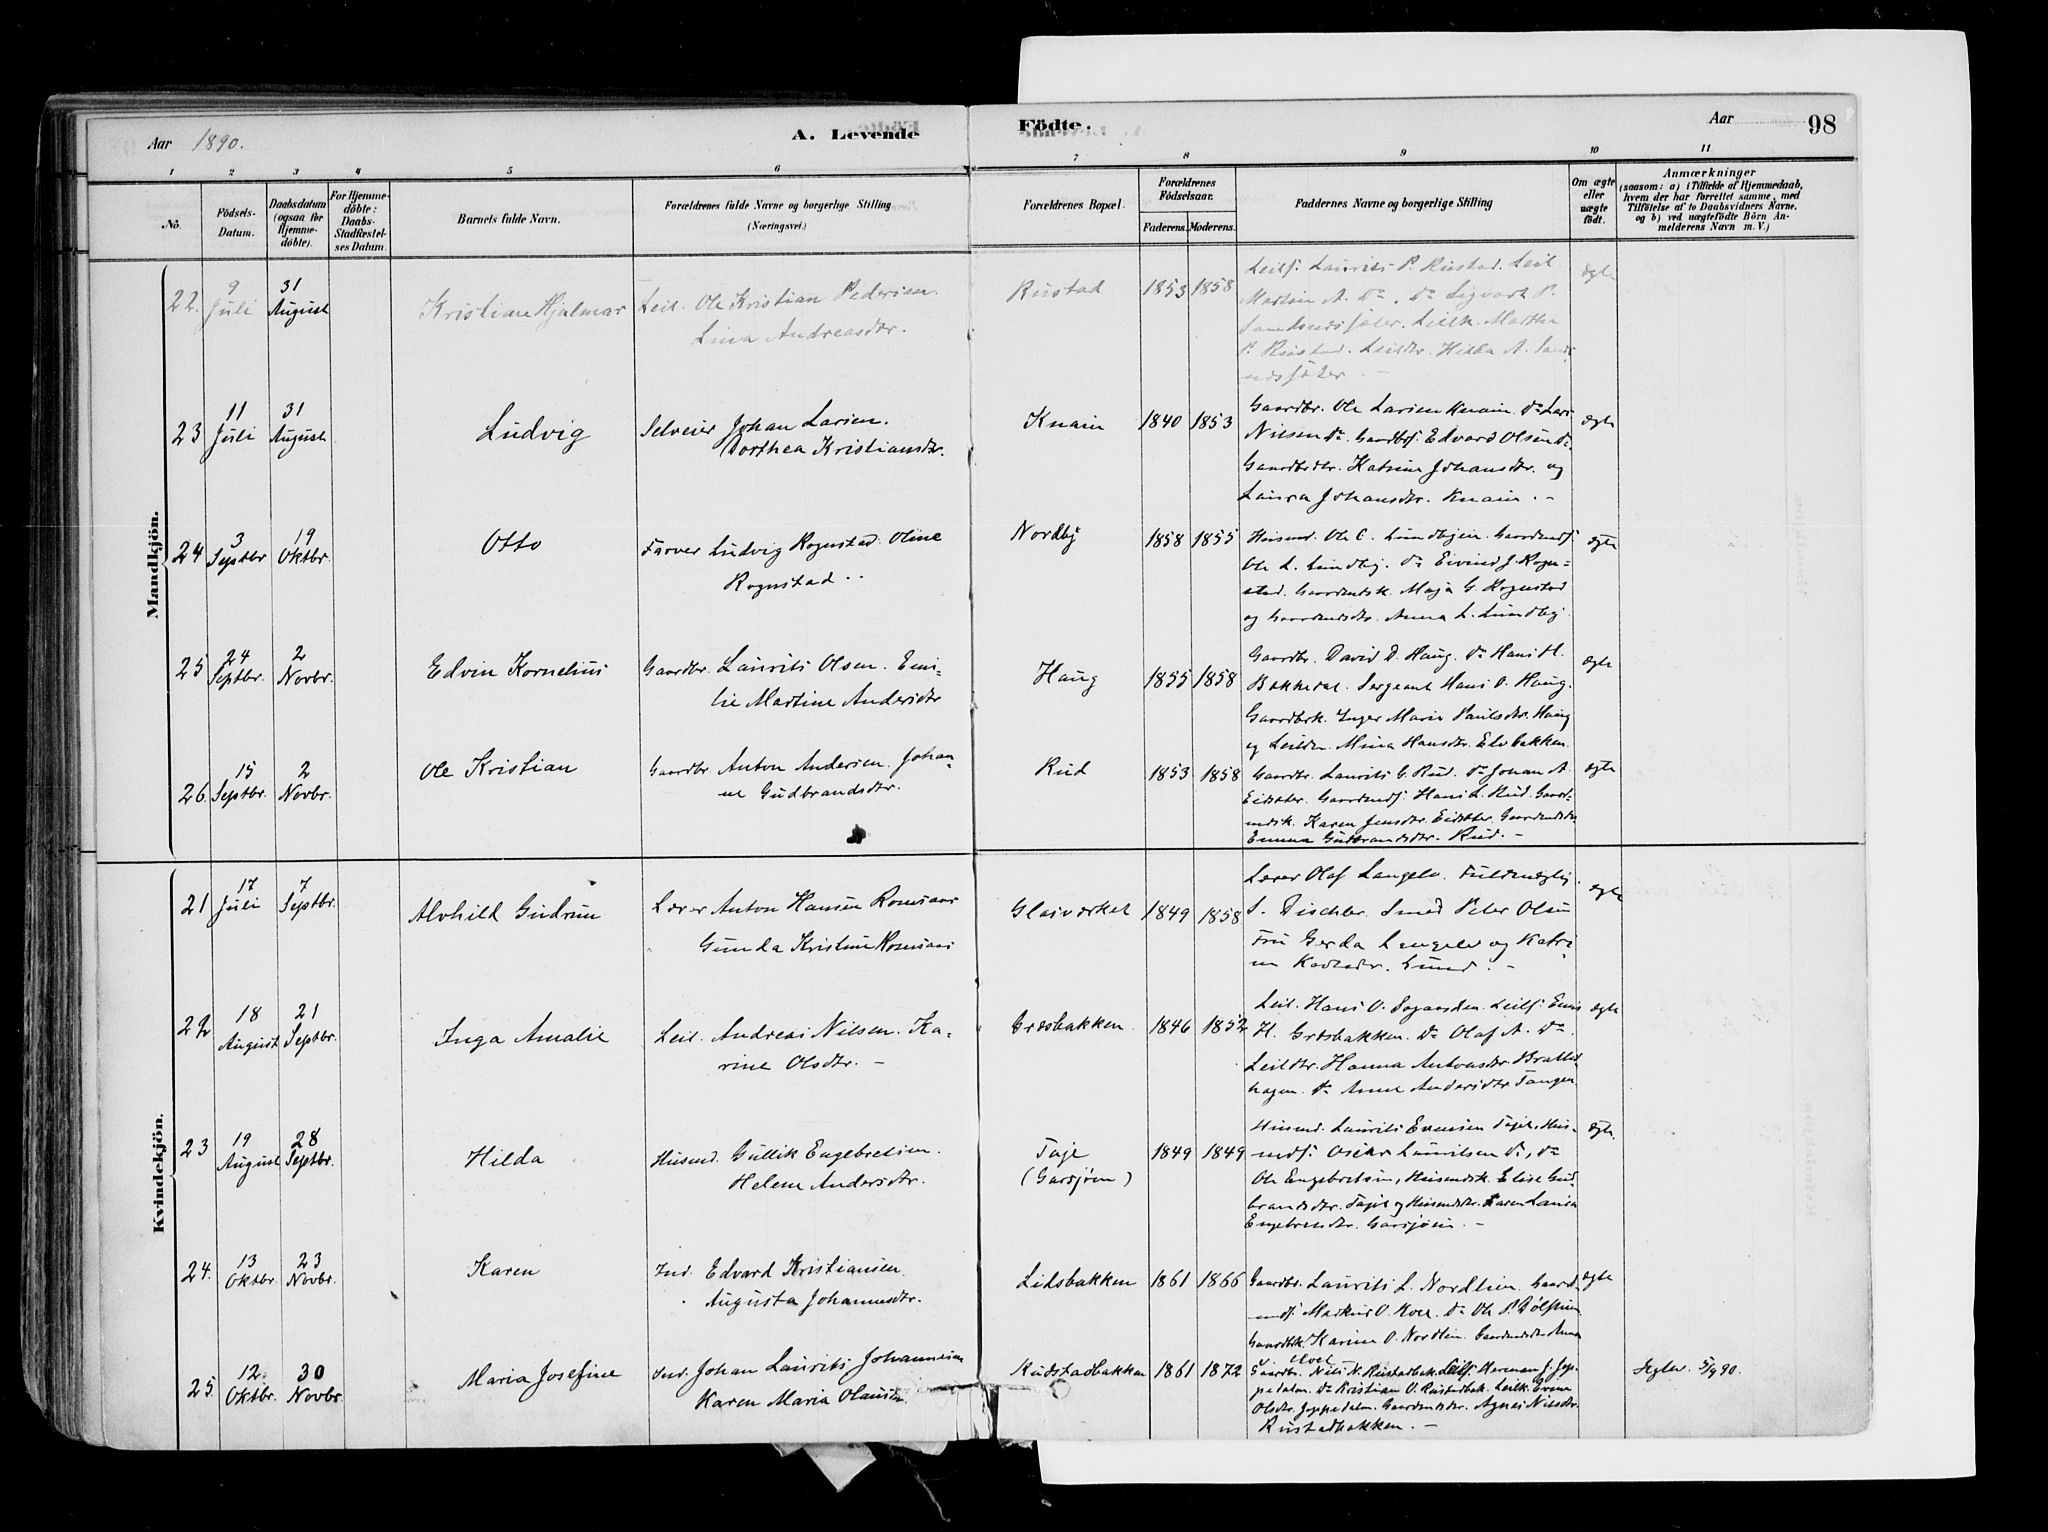 Aar 1890.
A. Levende
Födte.
Aar
98
1 2 3 4 5 6 7 8 9 10 11
No.
Födsels-Datum.
Daabsdatum (ogsaa för Hjemme-döbte).
For Hjemme-döbte: Daabs-Stadfæstel-ses Datum.
Barnets fulde Navn.
Forældrenes fulde Navne og borgerlige Stilling (Næringsvei.)
Forældrenes Bopæl.
Forældrenes Födselsaar.
Faderens. Moderens.
Faddernes Navne og borgerlige Stilling
Om ægte eller uægte födt.
Anmærkninger
(saasom: a) i Tilfælde af Hjemmedaab, hvem der har forrettet samme, med Tilföielse af to Daabsvidners Navne, og b) ved uægtefödte Börn An-melderens Navn m. V.)
Mandkjön.
22. 9 Juli 31 August Kristian Hjalmar Leil. Ole Kristian Pedersen.
Lina Andreasdtr.
Rustad 1853 1858
Leilf. Laurits P. Rustad. Leil.
Martin A. Do. Do Sigvart P.
Leilk. Marthe
P. Rustad. Leildtr. Hilda A.
ægte
23 11 Juli 31 August Ludvig Selveier Johan Larsen.
Dorthea Kristiansdtr.
Knain 1840 1853
Gaardbr. Ole Larsen Knain. Do Lars
Nilsen Do. Gaardbf. Edvard Olsen Do
Gaardbdtr. Katrine Johansdtr. og
Laura Johansdtr. Knain. -
ægte
24 3 Septbr 19 Oktbr. Otto Farver Ludvig Rognstad. Oline
Rognstad..
Nordby 1858 1855
Husmd. Ole C. Lundbyen. Gaardmdf.
Ole L. Lundby. Do Eivind J. Rogn-
stad. Gaardmdsk. Maja G. Rognstad
og Gaardmdsdtr. Anna L. Lundby.
ægte
25 24 Septbr. 2 Novbr. Edvin Kornelius Gaardbr. Laurits Olsen. Emi-
lie Martine Andersdtr
Haug 1855 1858
Gaardbr. David D. Haug. Do Hans H.
Bakkedal. Sergeant Hans O. Haug.
Gaardbrk. Inger Marie Paulsdtr. Haug
og Leildtr. Mina Hansdtr. Elvbakken.
ægte
26. 15 Septbr. 2 Novbr. Ole Kristian Gaardbr. Anton Andersen. Johan-
ne Gudbrandsdtr.
Rud 1853 1858
Gaardbr. Laurits G. Rud. Do Johan A.
Gaardmdf. Hans L. Rud. Gaard-
mdsk. Karen Jensdtr. Gaardmdsdtr
Emma Gudbrandsdtr. Rud. -
ægte
Kvindekjön.
21 17 Juli 7 Septbr. Alvhild Gudrun Lærer Anton Hansen Romsaas
Gunda Kristine Romsaas
Glasværket 1849 1858
Lærer Olaf Langelv. Fuldmægtig
S. Dischler. Smed Peter Olsen
Fru Gerda Langelv og Katri-
ne
ægte
22 18 August 21 Septbr. Inga Amalie Leil. Andreas Nilsen. Ka-
rine Olsdtr. -
Græsbakken 1846 1852
Leil. Hans O. Leilf.
H. Græsbakken. Do Olaf A. Do.
Leildtr. Hanna Antonsdtr. Bratte-
hagen. Do Anne Andersdtr. Tangen
ægte
23 19 August 28 Septbr. Hilda Husmd. Gullik Engebretsen.
Helene Andersdtr.
Taje
(Garsjøen)
1849 1849
Husmd. Laurits Evensen Taje. Hus-
mdf. Oscar Lauritsen Do, Do
Ole Engebretsen, Husmdsk. Elise Gud-
brandsdtr. Taje og Husmdsdtr. Karen Laura
Engebretsdtr. Garsjøen. -
ægte.
24. 13 Oktbr. 23 Novbr. Karen Ind. Edvard Kristiansen.
Augusta Johannesdtr.
Lidsbakken 1861 1866
Gaardbr. Laurits L. Nordlien. Gaard-
mdf. Markus O. Do Ole P.
Gaardbk. Karine O. Nordlien. Gaardmdsdtr. Anna
ægte
25. 12 Oktbr. 30 Novbr. Maria Josefine Ind. Johan Laurits Johannesen
Karen Maria Olausdtr.
Rudstadbakken 1861 1872
Gaardbr. Nils N. Rustadbak. Leilf. Herman J. Jep-
pedalen. Do Kristian O. Rustadbak. Leilk.
Olsdtr. Jeppedalen. Gaardmdsdtr. Agnes Nilsdtr.
Rustadbakken. -
5/9 90.